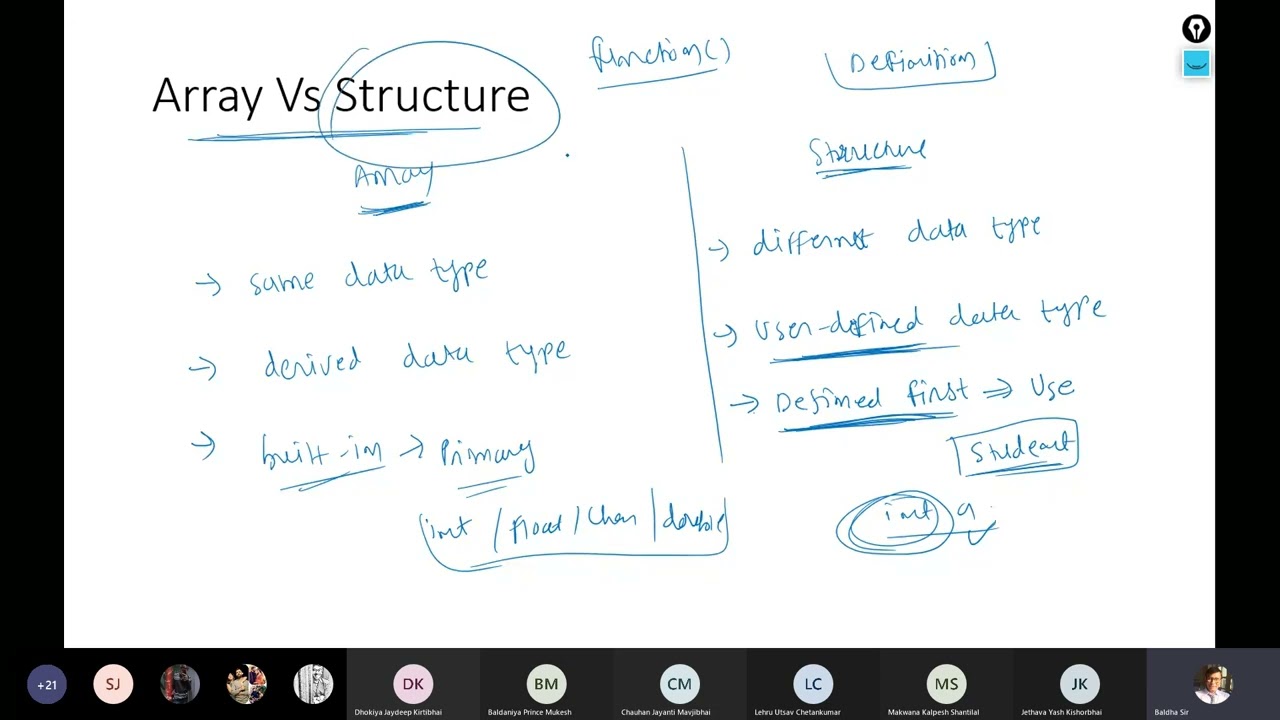 function()
Definition
Array Vs Structure
Array
Structure
→ same data type
→ different data type
→ derived data type
→ User-defined data type
→ built-in → Primary
→ Defined first ⇒ Use
Student
int / float / char | double
int a
+21
SJ
DK
BM
CM
LC
MS
JK
Dhokiya Jaydeep Kirtibhai
Baldaniya Prince Mukesh
Chauhan Jayanti Mavjibhai
Lehru Utsav Chetankumar
Makwana Kalpesh Shantilal
Jethava Yash Kishorbhai
Baldha Sir